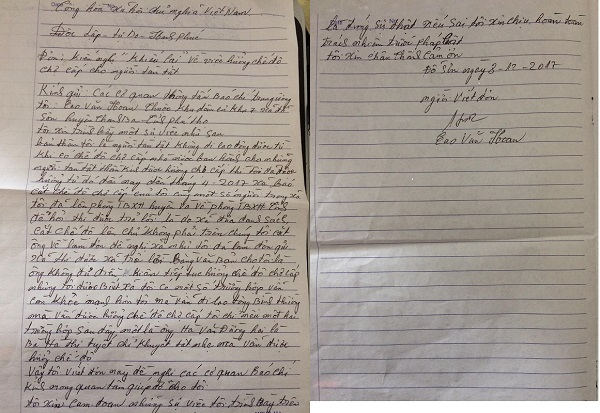 Cộng hòa Xã hội chủ nghĩa Việt Nam
Độc lập - tự Do - Hạnh phúc
Đơn: Kiến nghị "Khiếu lại" về việc hưởng chế độ
chế cấp cho người tàn tật
Kính gửi: Các cơ quan thông tấn Báo chí trung ương
tôi: Cao Văn Hoan thuộc khu dân cư khu 2 xã
Sơn huyện Thanh Ba - tỉnh phú thọ
tôi xin trình bày một sự việc như sau
bản thân tôi là người tàn tật không đi lao động được từ
khi có chế độ chế cấp nhà nước ban hành cho những
người tàn tật thần kinh được hưởng chế cấp thì tôi đã được
hưởng từ đó đến nay đến tháng 4-2017 xã Báo
cắt chế độ chế cấp của tôi cùng một số người trong xã
tôi đã lên phòng LBXH huyện và về phòng LBXH tỉnh
để hỏi thì được trả lời là do xã đưa danh sách
cắt chế độ lên chứ không phải trên chúng tôi cắt
ông về làm đơn đề nghị xã như tôi đã làm đơn gửi
xã thì được xã trả lời Bằng văn Bản cho tôi là
ông không đủ điều kiện tiếp tục hưởng chế độ chế cấp
nhưng tôi được Biết là đã có một số trường hợp vẫn
còn khỏe mạnh hơn tôi mà vẫn đi lao động Bình thường
mà vẫn được hưởng chế độ chế cấp tôi chỉ nêu một hai
trường hợp sau đây một là ông Hà Văn Đăng hai là
Bà Hà thị tuyết chỉ khuyết tật nhẹ mà vẫn được
hưởng chế độ
Vậy tôi viết đơn này đề nghị các cơ quan Báo chí
kính mong quan tâm giúp đỡ cho tôi
tôi xin cam đoan những sự việc tôi trình Bày trên
Là đúng sự thật nếu sai tôi xin chịu hoàn toàn
trách nhiệm trước pháp luật
tôi xin chân thành cảm ơn
Sơn ngày 3-12-2017
người viết đơn
Cao Văn Hoan